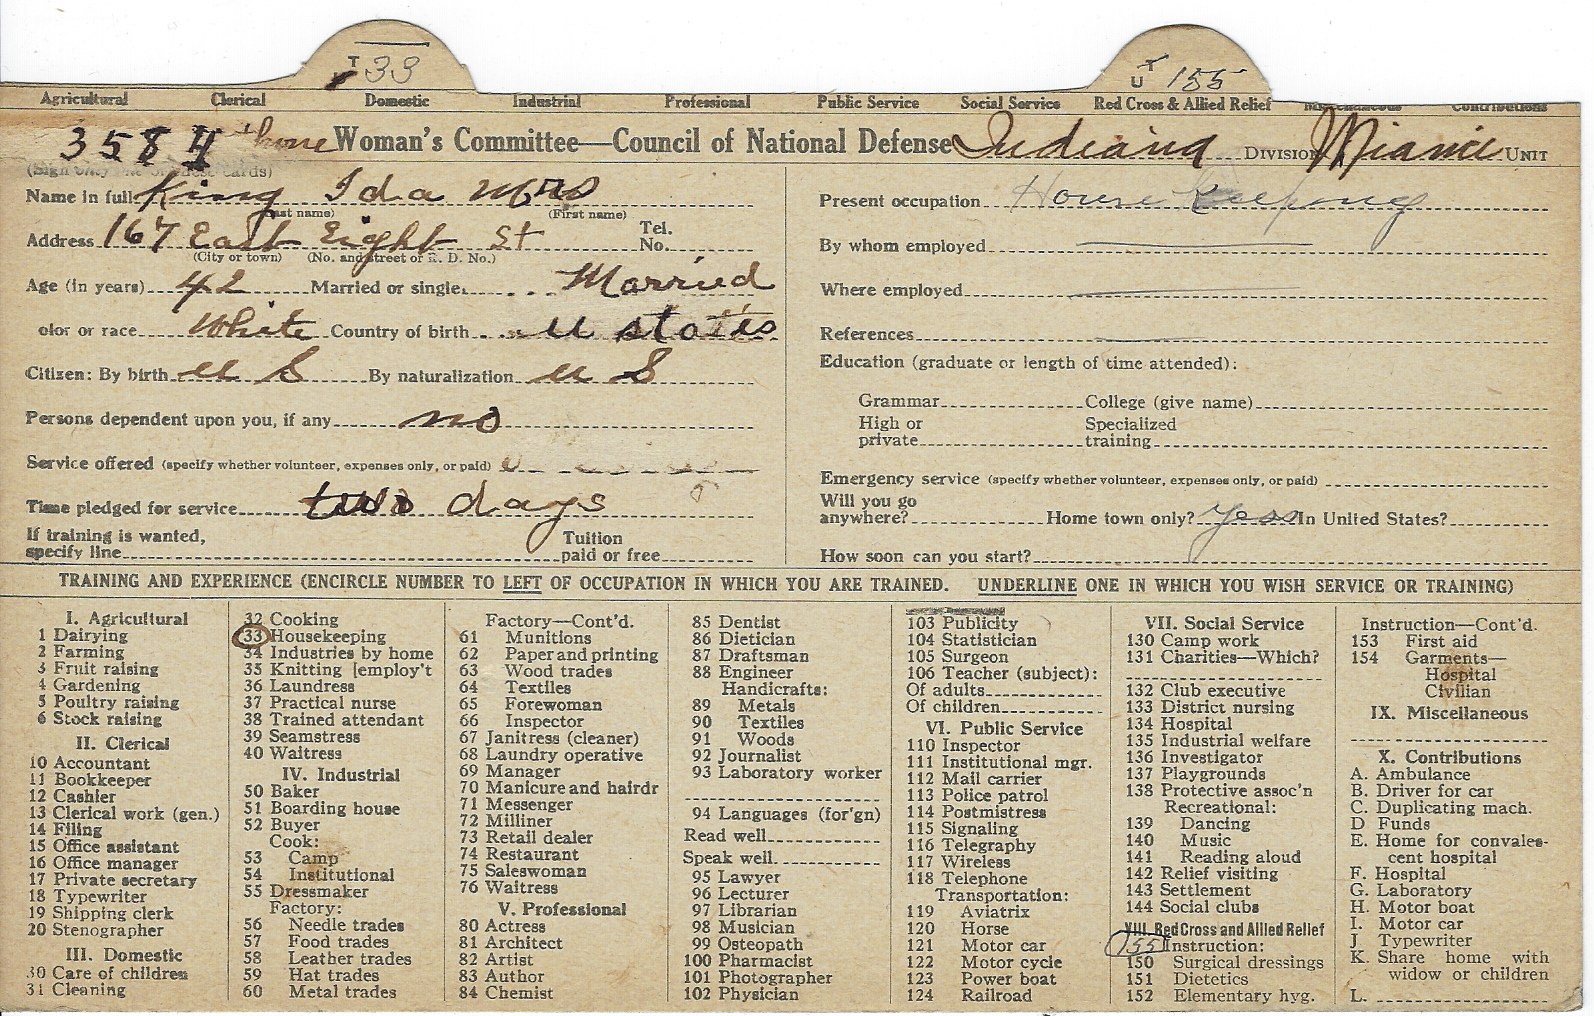 T
33
T
U 155
Agricultural Clerical Domestic Industrial Professional Public Service Social Service Red Cross & Allied Relief Miscellaneous Contributions
3584 Phone Woman's Committee—Council of National Defense Indiana DIVISION Miami UNIT
(Sign only one of these cards)
Name in full King Ida Mrs
(Last name) (First name)
Address 167 East Eight St Tel. No.
(City or town) (No. and street or R. D. No.)
Age (in years) 42 Married or single Married
olor or race White Country of birth U states
Citizen: By birth U S By naturalization U S
Persons dependent upon you, if any no
Service offered (specify whether volunteer, expenses only, or paid)
Time pledged for service two days
If training is wanted, specify line Tuition paid or free
Present occupation House Keeping
By whom employed
Where employed
References
Education (graduate or length of time attended):
Grammar College (give name)
High or private Specialized training
Emergency service (specify whether volunteer, expenses only, or paid)
Will you go anywhere? Home town only? yes In United States?
How soon can you start?
TRAINING AND EXPERIENCE (ENCIRCLE NUMBER TO LEFT OF OCCUPATION IN WHICH YOU ARE TRAINED. UNDERLINE ONE IN WHICH YOU WISH SERVICE OR TRAINING)
I. Agricultural
1 Dairying
2 Farming
3 Fruit raising
4 Gardening
5 Poultry raising
6 Stock raising
II. Clerical
10 Accountant
11 Bookkeeper
12 Cashier
13 Clerical work (gen.)
14 Filing
15 Office assistant
16 Office manager
17 Private secretary
18 Typewriter
19 Shipping clerk
20 Stenographer
III. Domestic
30 Care of children
31 Cleaning
32 Cooking
33 Housekeeping
34 Industries by home
35 Knitting [employ't
36 Laundress
37 Practical nurse
38 Trained attendant
39 Seamstress
40 Waitress
IV. Industrial
50 Baker
51 Boarding house
52 Buyer
Cook:
53 Camp
54 Institutional
55 Dressmaker
Factory:
56 Needle trades
57 Food trades
58 Leather trades
59 Hat trades
60 Metal trades
Factory—Cont'd.
61 Munitions
62 Paper and printing
63 Wood trades
64 Textiles
65 Forewoman
66 Inspector
67 Janitress (cleaner)
68 Laundry operative
69 Manager
70 Manicure and hairdr
71 Messenger
72 Milliner
73 Retail dealer
74 Restaurant
75 Saleswoman
76 Waitress
V. Professional
80 Actress
81 Architect
82 Artist
83 Author
84 Chemist
85 Dentist
86 Dietician
87 Draftsman
88 Engineer
Handicrafts:
89 Metals
90 Textiles
91 Woods
92 Journalist
93 Laboratory worker
94 Languages (for'gn)
Read well
Speak well
95 Lawyer
96 Lecturer
97 Librarian
98 Musician
99 Osteopath
100 Pharmacist
101 Photographer
102 Physician
103 Publicity
104 Statistician
105 Surgeon
106 Teacher (subject):
Of adults
Of children
VI. Public Service
110 Inspector
111 Institutional mgr.
112 Mail carrier
113 Police patrol
114 Postmistress
115 Signaling
116 Telegraphy
117 Wireless
118 Telephone
Transportation:
119 Aviatrix
120 Horse
121 Motor car
122 Motor cycle
123 Power boat
124 Railroad
VII. Social Service
130 Camp work
131 Charities—Which?
132 Club executive
133 District nursing
134 Hospital
135 Industrial welfare
136 Investigator
137 Playgrounds
138 Protective assoc'n
Recreational:
139 Dancing
140 Music
141 Reading aloud
142 Relief visiting
143 Settlement
144 Social clubs
VIII. Red Cross and Allied Relief
155 Instruction:
150 Surgical dressings
151 Dietetics
152 Elementary hyg.
Instruction—Cont'd.
153 First aid
154 Garments—
Hospital
Civilian
IX. Miscellaneous
X. Contributions
A. Ambulance
B. Driver for car
C. Duplicating mach.
D Funds
E. Home for convales-
cent hospital
F. Hospital
G. Laboratory
H. Motor boat
I. Motor car
J Typewriter
K. Share home with
widow or children
L.